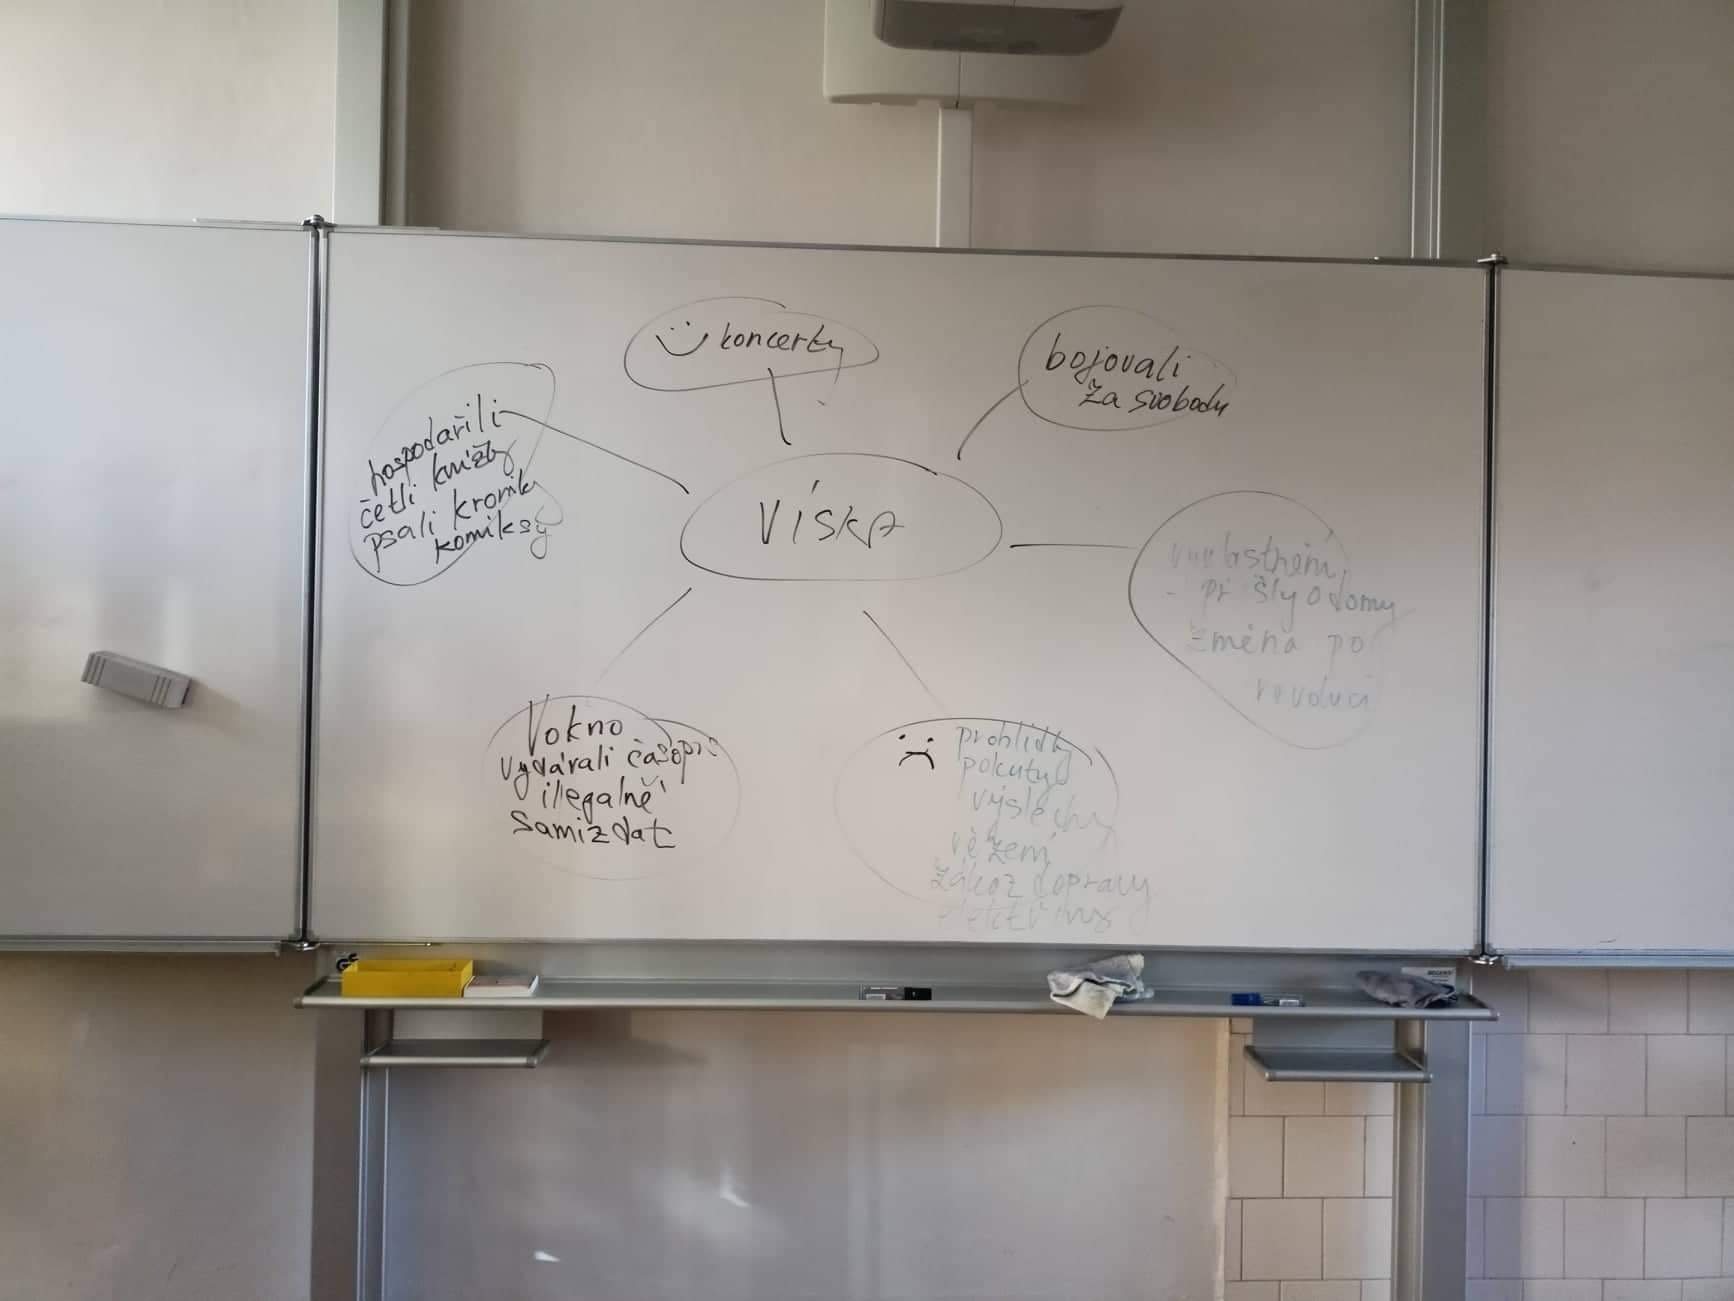 koncerty
bojovali
za svobodu
hospodařili
četli knížky
psali kroniky
komiksy
VÍSKA
vyvlastnění
- přišly o domy
změna po
revoluci
Vokno
vydávali časopis
illegalně
samizdat
prohlídky
pokuty
výslechy
vězení
zákaz dopravy